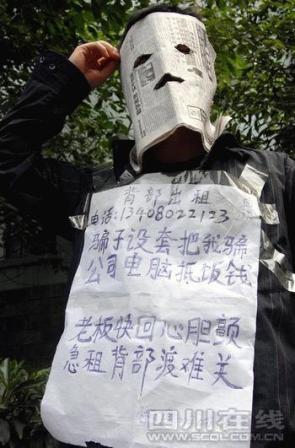 背部出租
电话:13408022123
骗子设套把我骗
公司电脑抵饭钱
老板快回心胆颤
急租背部渡难关
四川在线
www.SCOL.COM.CN